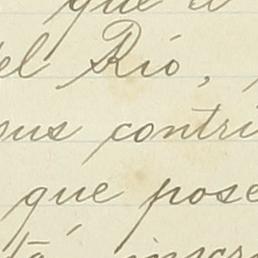 que el
del Río,
sus contri
que pose
tá, inscri